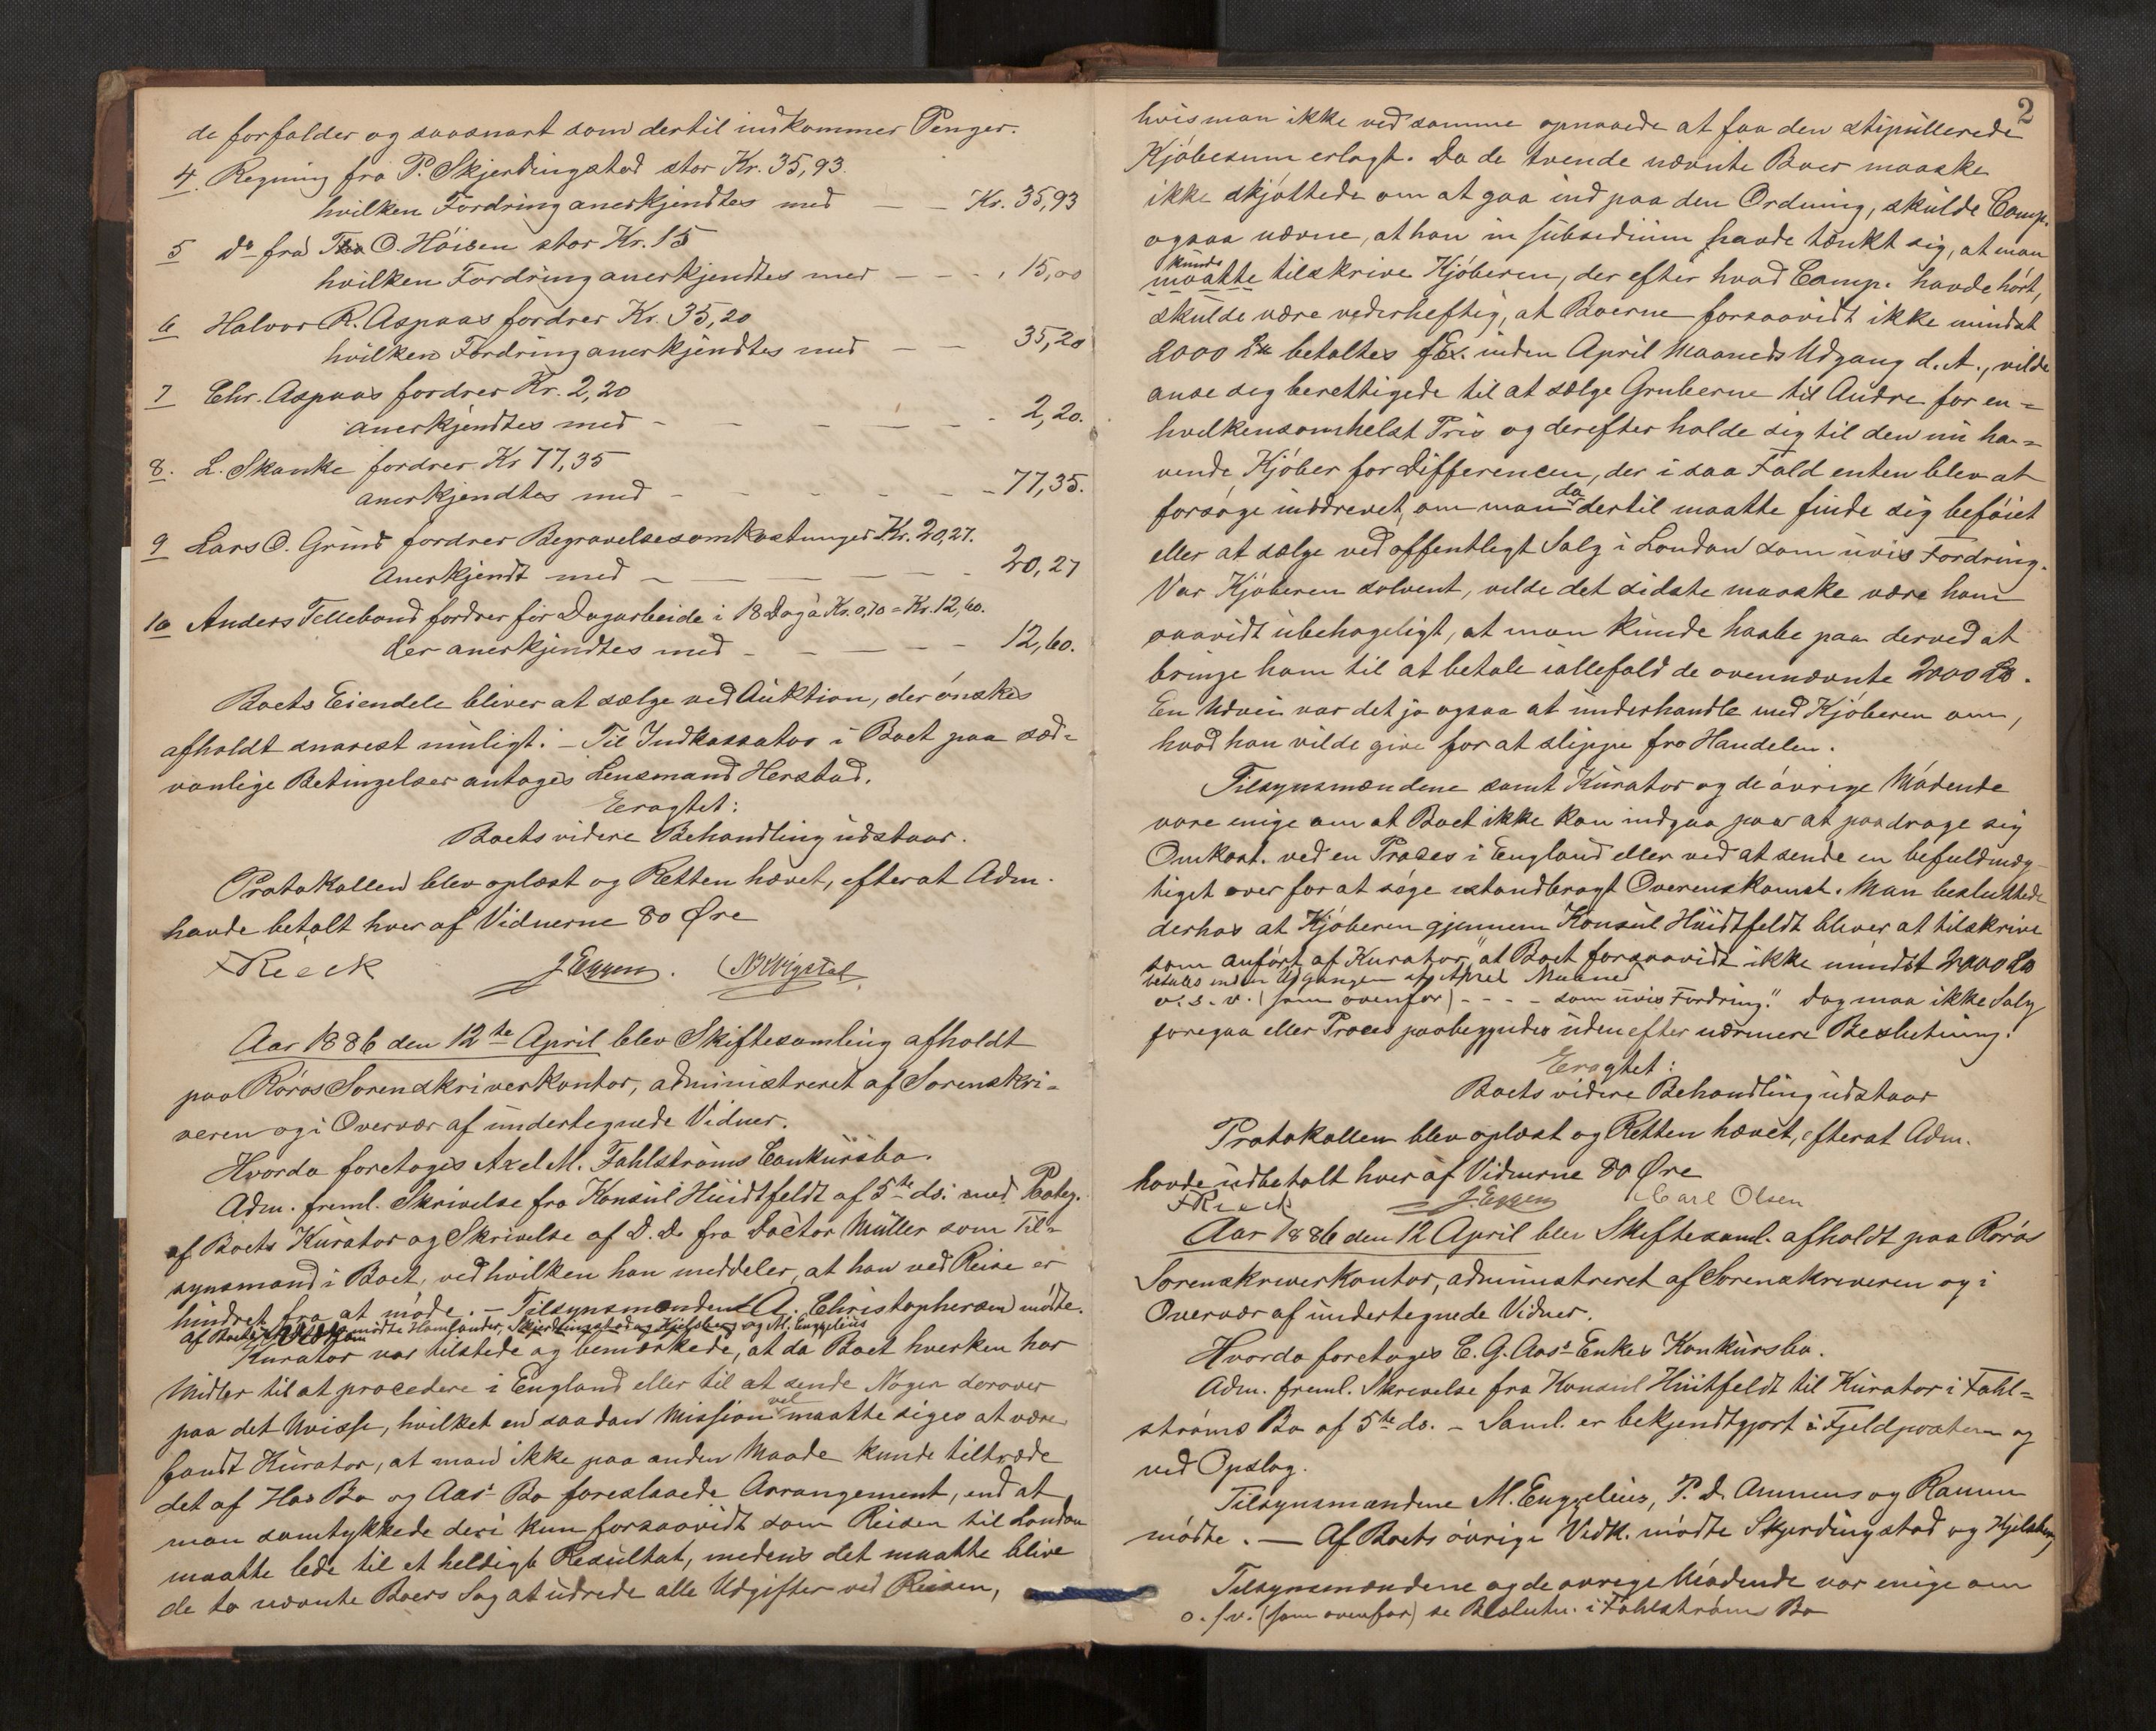 de forfalder og saasnart som dertil indkommer Penger.
4. Regning fra P. Skjerdingstad stor Kr. 35,93.
hvilken Fordring anerkjendtes med — — Kr. 35,93
5 do fra O. Höisen stor Kr. 15
hvilken Fordring anerkjendtes med — — - . 15,00
6 Halvor R. Aspaas fordrer Kr. 35,20
hvilken Fordring anerkjendtes med — — 35,20
7 Chr. Aspaas fordrer Kr. 2,20
anerkjendtes med - - - - - 2,20.
8. L. Skanke fordrer Kr 77,35
anerkjendtes med - - - - - 77,35.
9 Lars O. Grind fordrer Begravelsesomkostninger Kr. 20,27.
Anerkjendt med - - - - - 20,27
10 Anders Tellebond fordrer for Dagarbeide i 18 Dag à Kr. 0,70 = Kr. 12,60.
der anerkjendtes med - - - - - 12,60.
Boets Eiendele bliver at sælge ved Auktion, der ónskes
afholdt snarest muligt. - Til Indkassator i Boet paa sæd-
vanlige Betingelser antoges Lensmand Herstad.
Eragtet:
Boets videre Behandling udstaar.
Protokollen blev oplæst og Retten hævet, efterat Adm.
havde betalt hver af Vidnerne 80 Øre
FRieck J Eggen. N Wigstal
Aar 1886 den 12te April blev Skiftesamling afholdt
paa Róros Sorenskriverkontor, administreret af Sorenskri-
veren og i Overvær af undertegnede Vidner.
Hvorda foretoges Axel M. Fahlstróms Conkursbo.
Adm. freml. Skrivelse fra Konsul Huidtfeldt af 5te ds. med Paateg.
af Boets Kurator og Skrivelse af D. D. fra Doctor Müller som Til-
synsmand i Boet, ved hvilken han meddeler, at han ved Reise er
hindret fra at móde. - Tilsynsmanden A. Christophersen módte.
af Boets módte Homlander, Skjerdingstad og Hjelsberg og M. Engzelius
Kurator var tilstede og bemærkede, at da Boet hverken har
Midler til at procedere i England eller til at sende Nogen derover
paa det Uvisse, hvilket en saadan Mission vel maatte siges at være
fandt Kurator, at man ikke paa anden Maade kunde tiltræde
det af Hos Bo og Aas' Bo foreslaaede Arrangement, end at
man samtykkede deri kun forsaavidt som Reisen til London
maatte lede til et heldigt Resultat, medens det maatte blive
de to nævnte Boers Sag at udrede alle Udgifter ved Reisen,
2
hvis man ikke ved samme opnaaede at faa den stipullerede
Kjóbesum erlagt. Da de tvende nævnte Boer maaske
ikke skjóttede om at gaa ind paa den Ordning, skulde Comp.
ogsaa nævne, at han in subsidium havde tænkt sig, at man
kunde
maatte tilskrive Kjóberen, der efter hvad Comp. havde hórt,
skulde være vederheftig, at Boerne forsaavidt ikke mindst
2000 £ betaltes f Ex. inden April Maaneds Udgang d. A., vilde
anse sig berettigede til at sælge Gruberne til Andre for en-
hvilkensomhelst Pris og derefter holde sig til den nu ha-
vende Kjóber for differencen, der i saa Fald enten blev at
forsóge inddrevet, om man da dertil maatte finde sig befóiet
eller at sælge ved offentligt Salg i London som uvis Fordring.
Var Kjóberen solvent, vilde det sidste maaske være ham
saavidt ubehageligt, at man kunde haabe paa derved at
bringe ham til at betale iallefald de ovennævnte 2000 £.
En Udvei var det jo ogsaa at underhandle med Kjóberen om,
hvad han vilde give for at slippe fra Handelen.
Tilsynsmændene samt Kurator og de óvrige Módende
vare enige om at Boet ikke kan indgaa paa at paadrage sig
Omkost. ved en Proces i England eller ved at sende en befuldmæg-
tiget over for at sóge istandbragt Overenskomst. Man besluttede
derhos at Kjóberen gjennem Konsul Huidtfeldt bliver at tilskrive
som anfórt af Kurator, "at Boet forsaavidt ikke mindst 2000 £
betales inden Udgangen af April Maaned
o. s. v. (som ovenfor) - - - - som uvis Fordring." dog maa ikke Salg
foregaa eller Proces paabegyndes uden efter nærmere Beslutning.
Eragtet:
Boets videre Behandling udstaar
Protokollen blev oplæst og Retten hævet, efterat Adm.
havde udbetalt hver af Vidnerne 80 Øre
FRieck J. Eggen Carl Olsen
Aar 1886 den 12 April blev Skiftesaml. afholdt paa Róros
Sorenskriverkontor, administreret af Sorenskriveren og i
Overvær af undertegnede Vidner.
Hvorda foretoges E. G. Aas' Enkes Konkursbo.
Adm. freml. Skrivelse fra Konsul Huitfeldt til Kurator i Fahl-
stróms Bo af 5te ds. - Saml. er bekjendtgjort i Fjeldposten og
ved Opslag.
Tilsynsmændene M. Engzelius, P. d. Ammens og Ramm
módte. — Af Boets óvrige Vedk. módte Skjerdingstad og Hjelsberg
Tilsynsmændene og de óvrige Módende var enige om
o. s v. (som ovenfor) se Beslutn. i Fahlstróms Bo